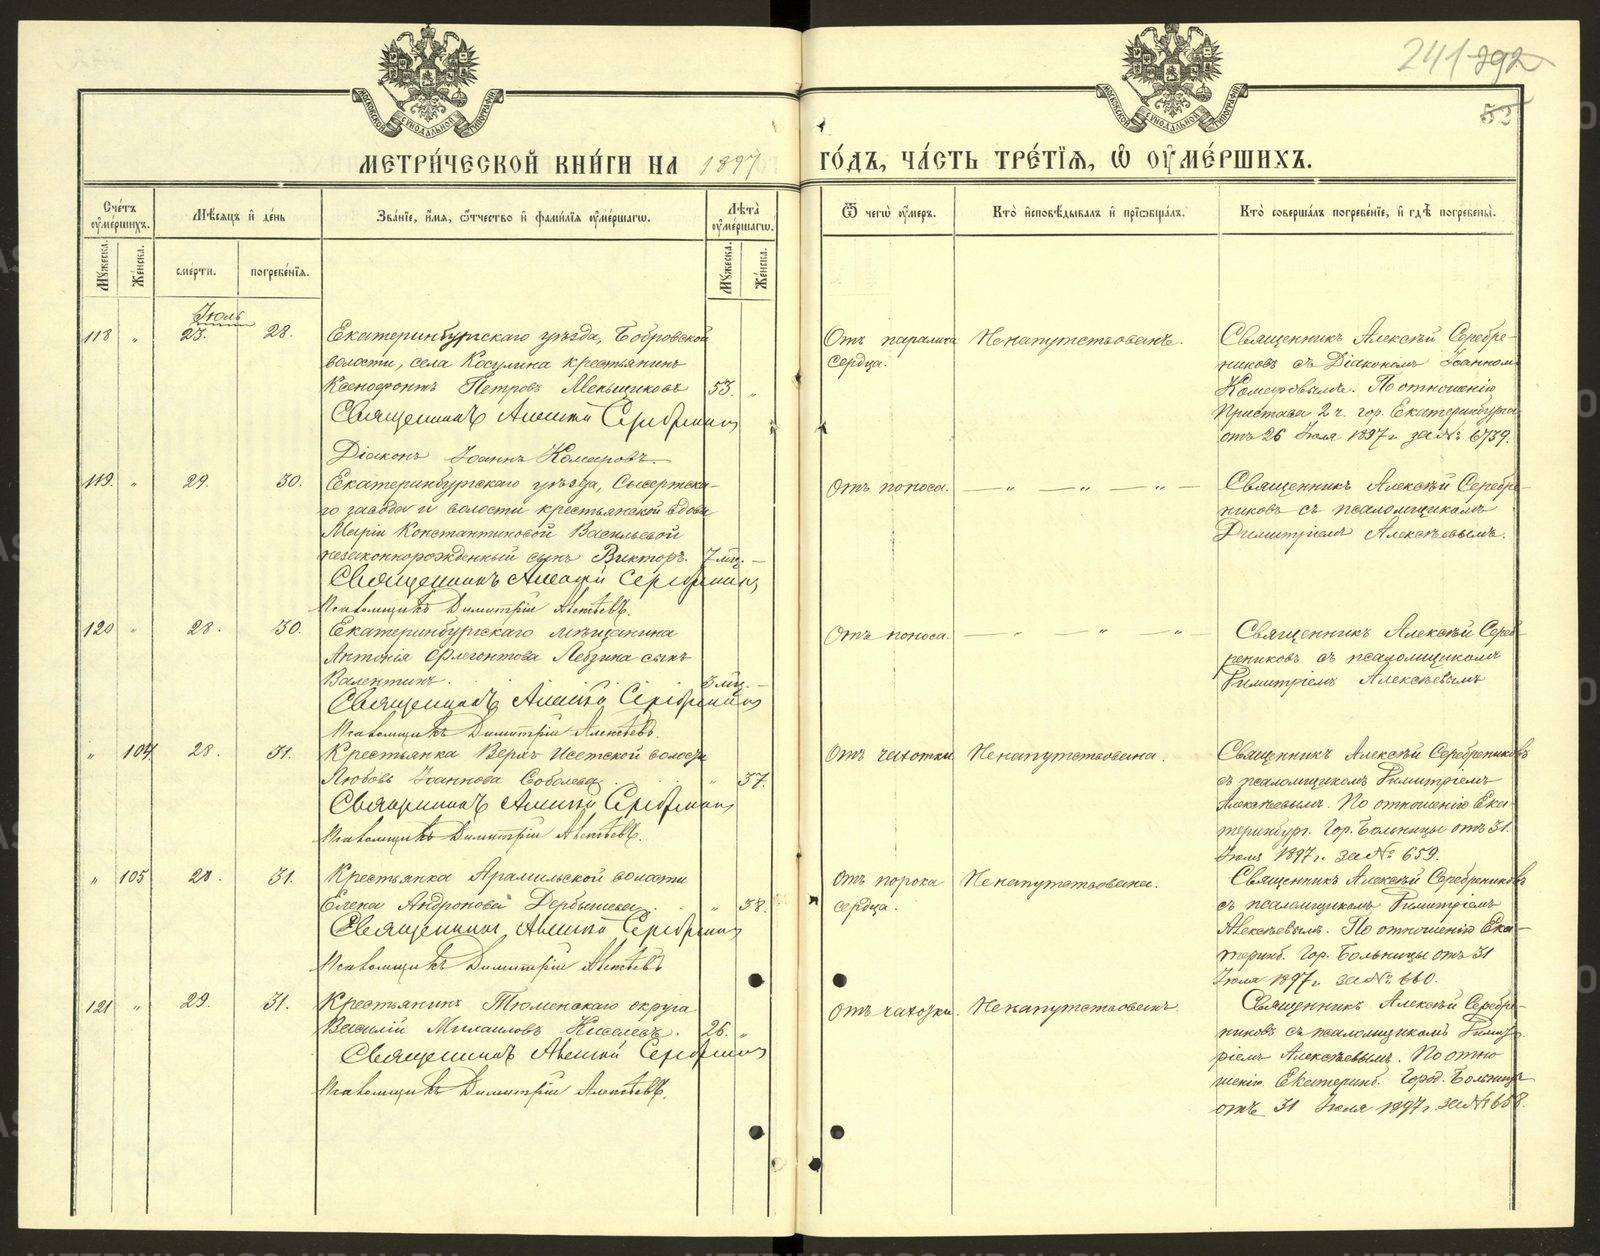 241 292
52
МЕТРИ́ЧЕСКОЙ КНИ́ГИ НА 1897 ГО́ДЪ, ЧА́СТЬ ТРЕ́ТЇѦ, Ѽ ОУМЕ́РШИХЪ.
Сче́тъ оумéршихъ.
Мꙋ́жеска.
Же́нска.
Мѣ́сѧцъ и҆ де́нь
сме́рти.
погребе́нїѧ.
Зва́нїе, и҆́мѧ, ѻ҆́тчество и҆ фами́лїѧ оумéршагѡ.
Лѣ́та оумéршагѡ.
Мꙋ́жеска.
Же́нска.
Ѿ чегѡ̀ оу́меръ.
Кто̀ и҆сповѣ́дывалъ и҆ прїѡбща́лъ.
Кто̀ соверша́лъ погребе́нїе, и҆ гдѣ̀ погребены̀.
Іюль
118 " 23. 28.
Екатеринбургскаго уѣзда, Бобровской
волости, села Косулина крестьянинъ
Ксенофонтъ Петровъ Меньщиковъ 53. "
Священникъ Алексѣй Серебренниковъ
Діаконъ Іоаннъ Комаровъ.
Отъ паралича
сердца.
Ненапутствованъ.
Священникъ Алексѣй Серебре-
никовъ съ Діакономъ Іоанномъ
Комаровымъ. По отношенію
Пристава 2 ч. гор. Екатеринбурга
отъ 26 Іюля 1897 г. за № 6739.
119. " 29. 30.
Екатеринбургскаго уѣзда, Сысертска-
го завода и волости крестьянской вдовы
Маріи Константиновой Васильевой
незаконнорожденный сынъ Викторъ. 7 мц. –
Священникъ Алексѣй Серебренниковъ
Псаломщикъ Димитрій Алексѣевъ.
Отъ поноса.
— " — " — " —
Священникъ Алексѣй Серебре-
никовъ съ псаломщикомъ
Димитріемъ Алексѣевымъ.
120 " 28. 30.
Екатеринбургскаго мѣщанина
Антонія Флегонтова Лебзина сынъ
Валентинъ. 3 мц. –
Священникъ Алексѣй Серебренниковъ
Псаломщикъ Димитрій Алексѣевъ.
Отъ поноса.
— " — " — " —
Священникъ Алексѣй Сереб-
рениковъ съ псаломщикомъ
Димитріемъ Алексѣевымъ
" 104 28. 31.
Крестьянка Верхъ Исетской волости
Любовь Іоаннова Соболева. " 37.
Священникъ Алексѣй Серебренниковъ
Псаломщикъ Димитрій Алексѣевъ.
Отъ чахотки
Ненапутствована.
Священникъ Алексѣй Серебрениковъ
съ псаломщикомъ Димитріемъ
Алексѣевымъ. По отношенію Ека-
теринбург. Гор. Больницы отъ 31
Іюля 1897 г. за № 659.
" 105 28. 31.
Крестьянка Арамильской волости
Елена Андронова Дербышева. " 38.
Священникъ Алексѣй Серебренниковъ
Псаломщикъ Димитрій Алексѣевъ
Отъ порока
сердца.
Ненапутствована.
Священникъ Алексѣй Серебрениковъ
съ псаломщикомъ Димитріемъ
Алексѣевымъ. По отношенію Ека-
теринб. Гор. Больницы отъ 31
Іюля 1897 г. за № 660.
121 " 29. 31.
Крестьянинъ Тюменскаго округа
Василій Михаиловъ Киселевъ. 26. "
Священникъ Алексѣй Серебренниковъ
Псаломщикъ Димитрій Алексѣевъ.
Отъ чахотки.
Ненапутствованъ.
Священникъ Алексѣй Серебре-
никовъ съ псаломщикомъ Димит-
ріемъ Алексѣевымъ. По отно
шенію Екатеринб. Город. Больницы
отъ 31 Іюля 1897 г. за № 658.